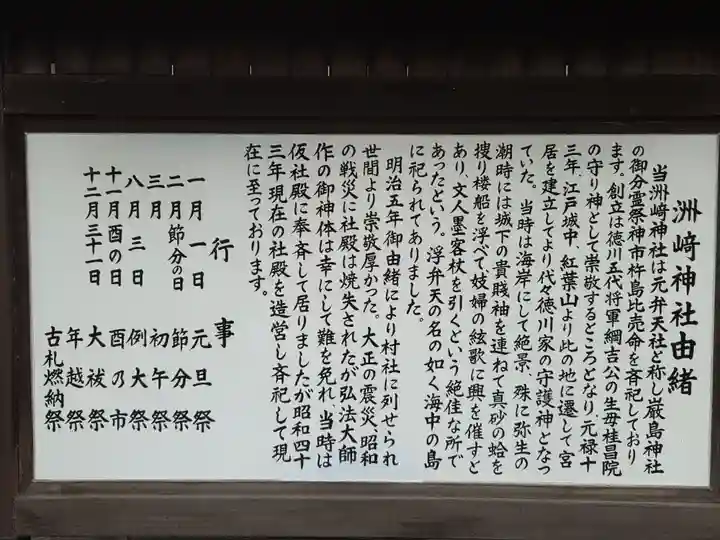 洲﨑神社由緒
当洲﨑神社は元弁天社と称し厳島神社
の御分霊祭神市杵島比売命を斉祀しており
ます。創立は徳川五代将軍綱吉公の生母桂昌院
の守り神として崇敬するところとなり、元禄十
三年、江戸城中、紅葉山より此の地に遷して宮
居を建立してより代々徳川家の守護神となっ
ていた。当時は海岸にして絶景、殊に弥生の
潮時には城下の貴賤袖を連ねて真砂の蛤を
捜り楼船を浮べ、妓婦の絃歌に興を催すと
あり、文人墨客杖を引くという絶佳な所で
あったという。浮弁天の名の如く海中の島
に祀られてありました。
明治五年御由緒により村社に列せられ
世間より崇敬厚かった。大正の震災、昭和
の戦災に社殿は焼失されたが弘法大師
作の御神体は幸にして難を免れ、当時は
仮社殿に奉斉して居りましたが昭和四十
三年現在の社殿を造営し斉祀して現
在に至っております。
行事
一月一日 元旦祭
二月節分の日 節分祭
三月 初午祭
八月三日 例大祭
十一月酉の日 酉乃市
十二月三十一日 大祓祭
年越祭
古札燃納祭